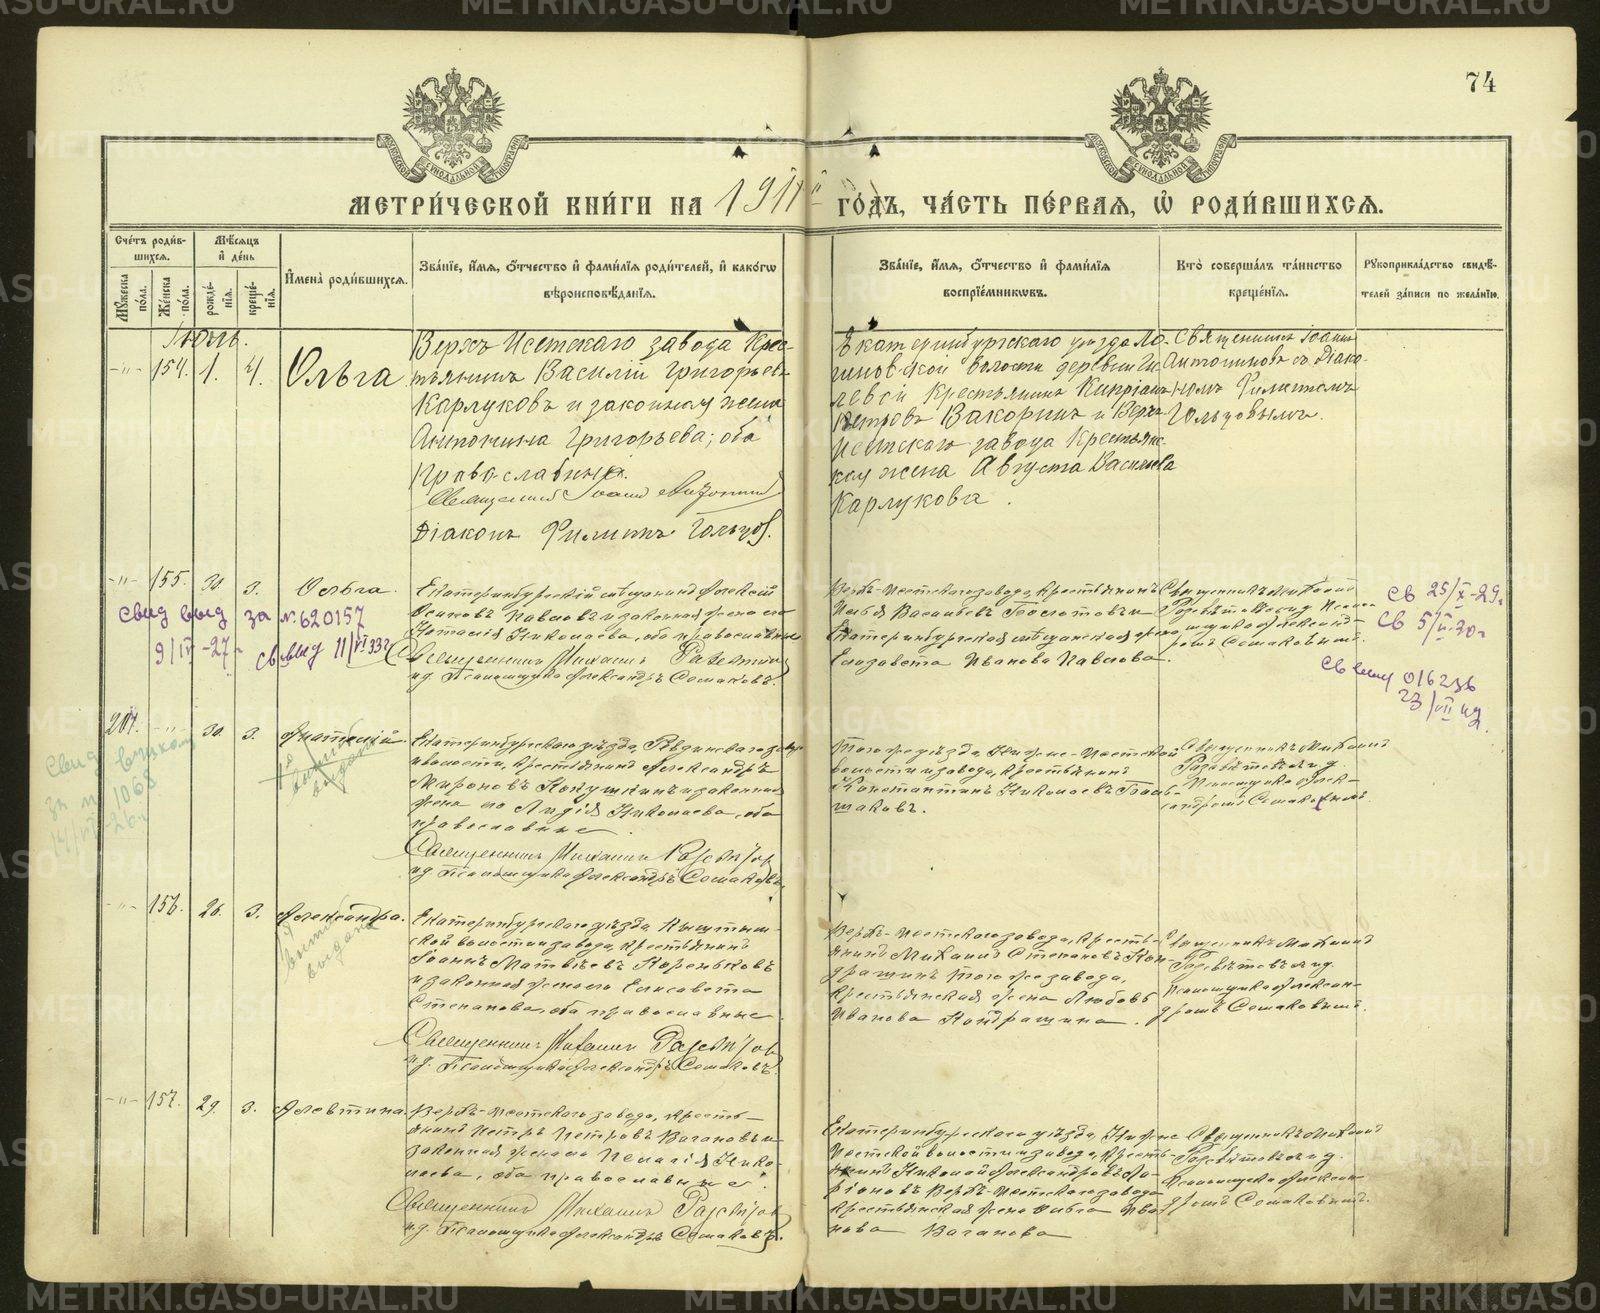 74
МЕТРИ́ЧЕСКОЙ КНИ́ГИ НА 1911й ГО́ДЪ, ЧА́СТЬ ПЕ́РВАЯ, Ѡ҆ РОДИ́ВШИХСЯ.
Сче́тъ роди́в-
шихся.
Му́жеска по́ла.
Же́нска по́ла.
Мѣ́сяцъ
и҆ де́нь
рожде́-
нїя.
креще́-
нїя.
И҆мена̀ роди́вшихся.
Зва́нїе, и҆́мя, ѻ҆́тчество и҆ фами́лїя роди́телей, и҆ како́гѡ
вѣроисповѣ́данїя.
Зва́нїе, и҆́мя, ѻ҆́тчество и҆ фами́лїя
воспрїе́мниковъ.
Кто̀ соверша́лъ та́инство
креще́нїя.
Рꙋкоприкла́дство свидѣ́-
телей за́писи по жела́нїю.
Іюль.
-"- 154. 1. 4. Ольга
Верхъ Исетскаго завода Крес-
тьянинъ Василій Григорьевъ
Карлуковъ и законная жена
Антонина Григорьева; оба
Православные.
Священникъ Іоаннъ
Діаконъ Филиппъ Гольцов.
Екатеринбургскаго уѣзда Ло-
гиновской волости деревни Ги-
левой Крестьянинъ Кипріанъ
Петровъ Вакоринъ и Верхъ
Исетскаго завода Крестьянс-
кая жена Августа Васильева
Карлукова.
Священникъ Іоаннъ
Антониновъ съ Діако-
номъ Филиппомъ
Гольцовымъ.
-"- 155. 30. 3. Ольга.
Екатеринбургскій мѣщанинъ Алексій
Осиповъ Павловъ и законная жена его
Наталія Николаева, оба православные
Священникъ Михаилъ
и.д. Псаломщика Александръ Сомаковъ.
Верхъ-Исетскаго завода, крестьянинъ
Илья Васильевъ и
Екатеринбургская мѣщанская жена
Елизавета Иванова Павлова.
Священникъ Михаилъ
и.д. Псалом-
щика Александ-
ромъ Сомаковымъ.
Свид выд за №620157
9/IV-27г
св выд 11/VI 33г
св 25/X-29г
св 5/II-30г
Св выд 016236
23/VII 42.
207. -"- 30. 3.
Екатеринбургскаго уѣзда, Ревдинскаго завода
и волости, крестьянинъ Александръ
Мироновъ и законная
жена его Лидія Николаева, оба
православные
Священникъ Михаилъ
и.д. Псаломщика Александръ Сомаковъ.
Того же уѣзда, Нижне-Исетской
волости и завода, крестьянинъ
Константинъ Николаевъ Боль-
шаковъ.
Священникъ Михаилъ
и.д.
Псаломщика Алек-
сандромъ Сомаковымъ.
Свид
за № 1068
14/VII-26г
-"- 156. 26. 3. Александра.
выдана
Екатеринбургскаго уѣзда, Кыштым-
ской волости и завода, крестьянинъ
Іоаннъ Матвѣевъ Кореньковъ
и законная жена его Елисавета
Степанова, оба православные
Священникъ Михаилъ
и.д. Псаломщика Александръ Сомаковъ.
Верхъ-Исетскаго завода, кресть-
янинъ Михаилъ Степановъ Кон-
драшинъ того же завода,
крестьянская жена Любовь
Иванова Кондрашина.
Священникъ Михаилъ
и.д.
Псаломщика Алексан-
дромъ Сомаковымъ.
-"- 157. 29. 3. Алевтина.
Верхъ-Исетскаго завода, кресть-
янинъ Петръ Петровъ Вагановъ и
законная жена его Пелагія Нико-
лаева, оба православные.
Священникъ Михаилъ
и.д. Псаломщика Александръ Сомаковъ.
Екатеринбургскаго уѣзда, Нижне
Исетской волости и завода, кресть-
янинъ Николай Александровъ Ла-
ріоновъ Верхъ-Исетскаго завода
крестьянская жена Ива-
нова Ваганова
Священникъ Михаилъ
и.д.
Псаломщика Алексан-
дромъ Сомаковымъ.
METRIKI.GASO-URAL.RU